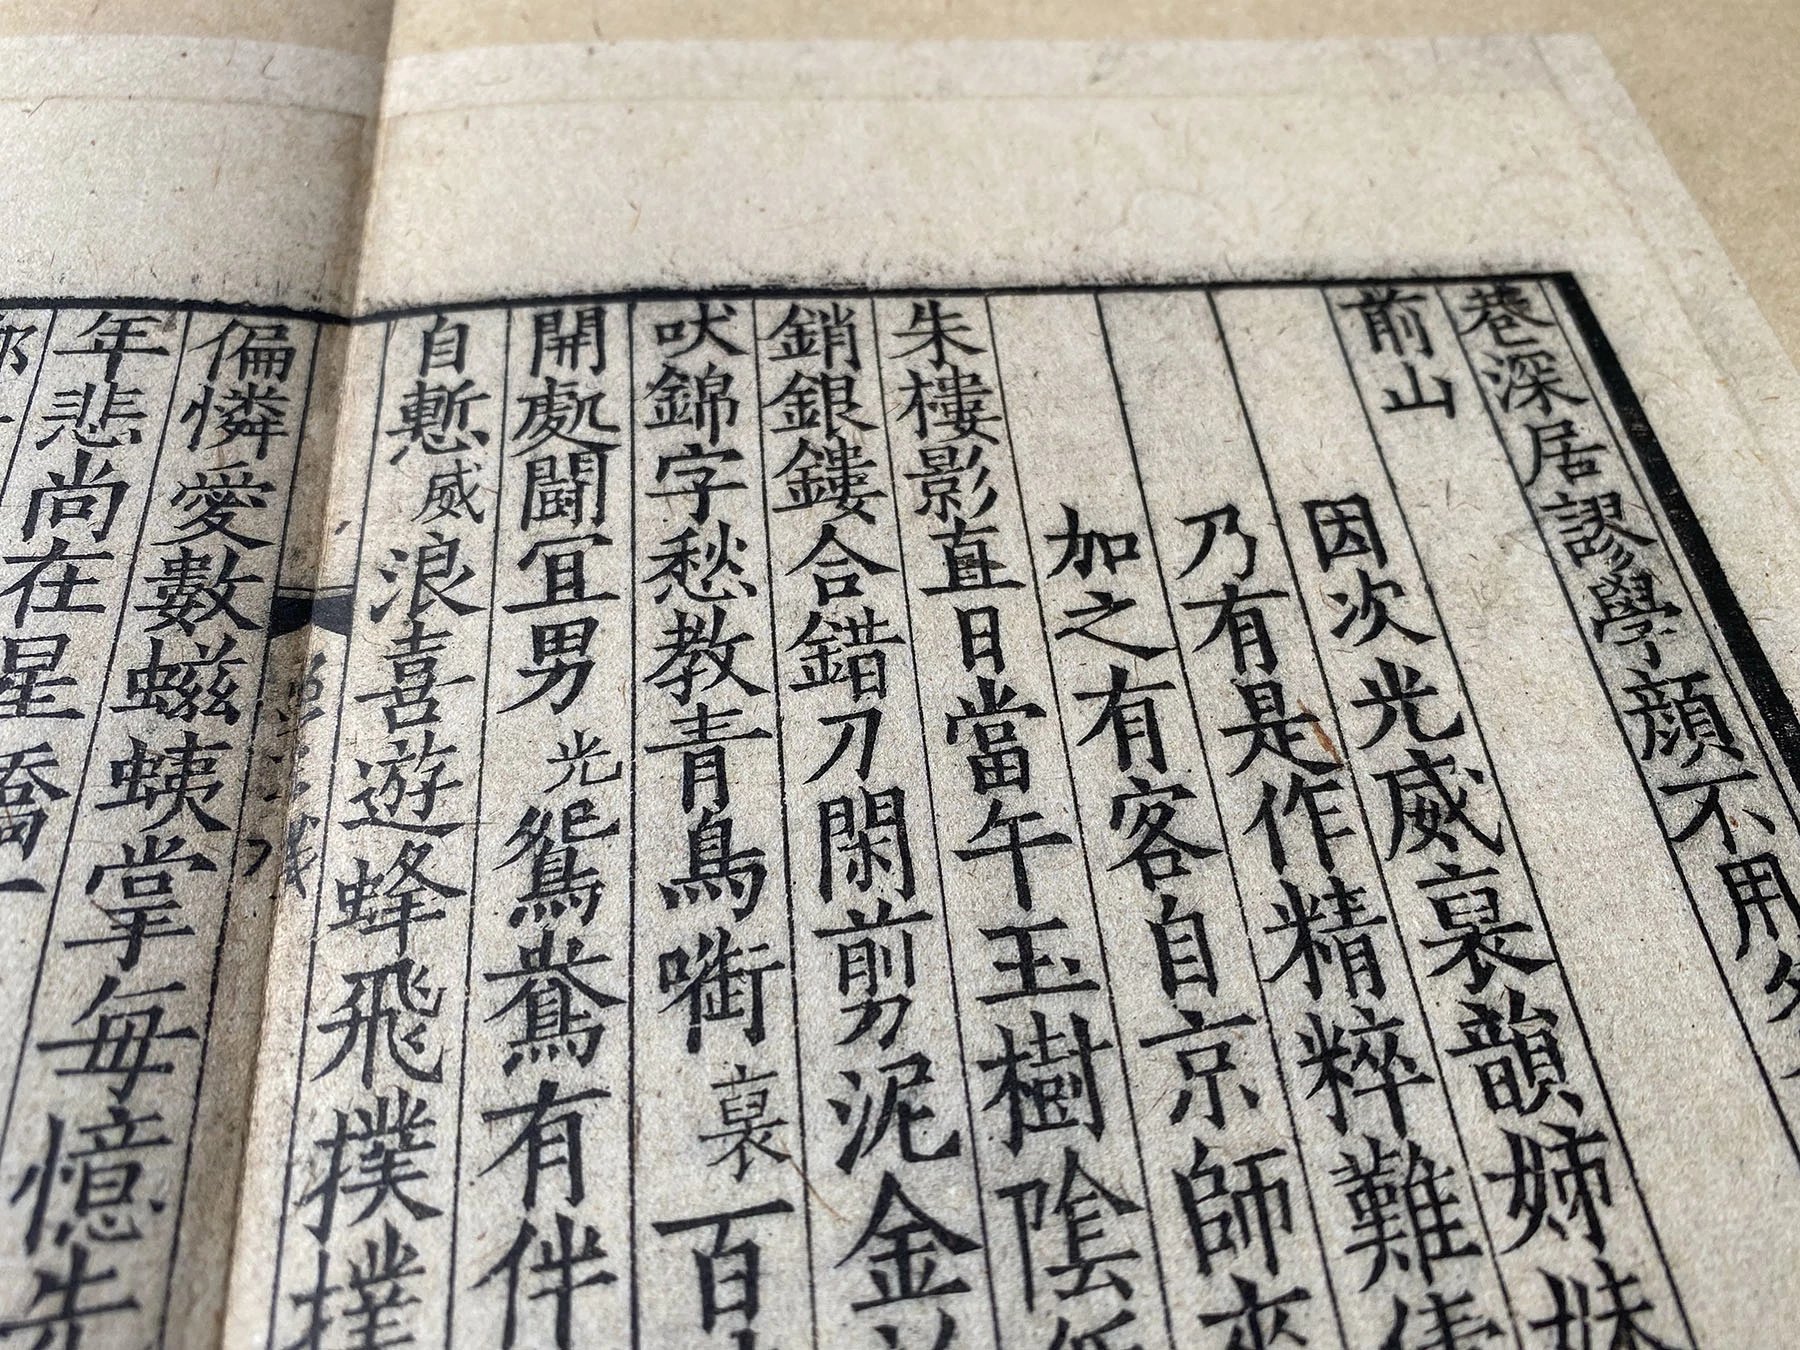 巷深居謬學顔不用
前山
因次光威裒韻姉妹
乃有是作精粹難儔
加之有客自京師來
朱樓影直日當午玉樹陰低
銷銀鏤合錯刀閑剪泥金
吠錦字愁教青鳥啣裒百
開處鬪冝男光鴛鴦有伴
自慙威浪喜遊蜂飛撲撲
偏憐愛數𧎿蛦掌每憶先
年悲尚在星橋一